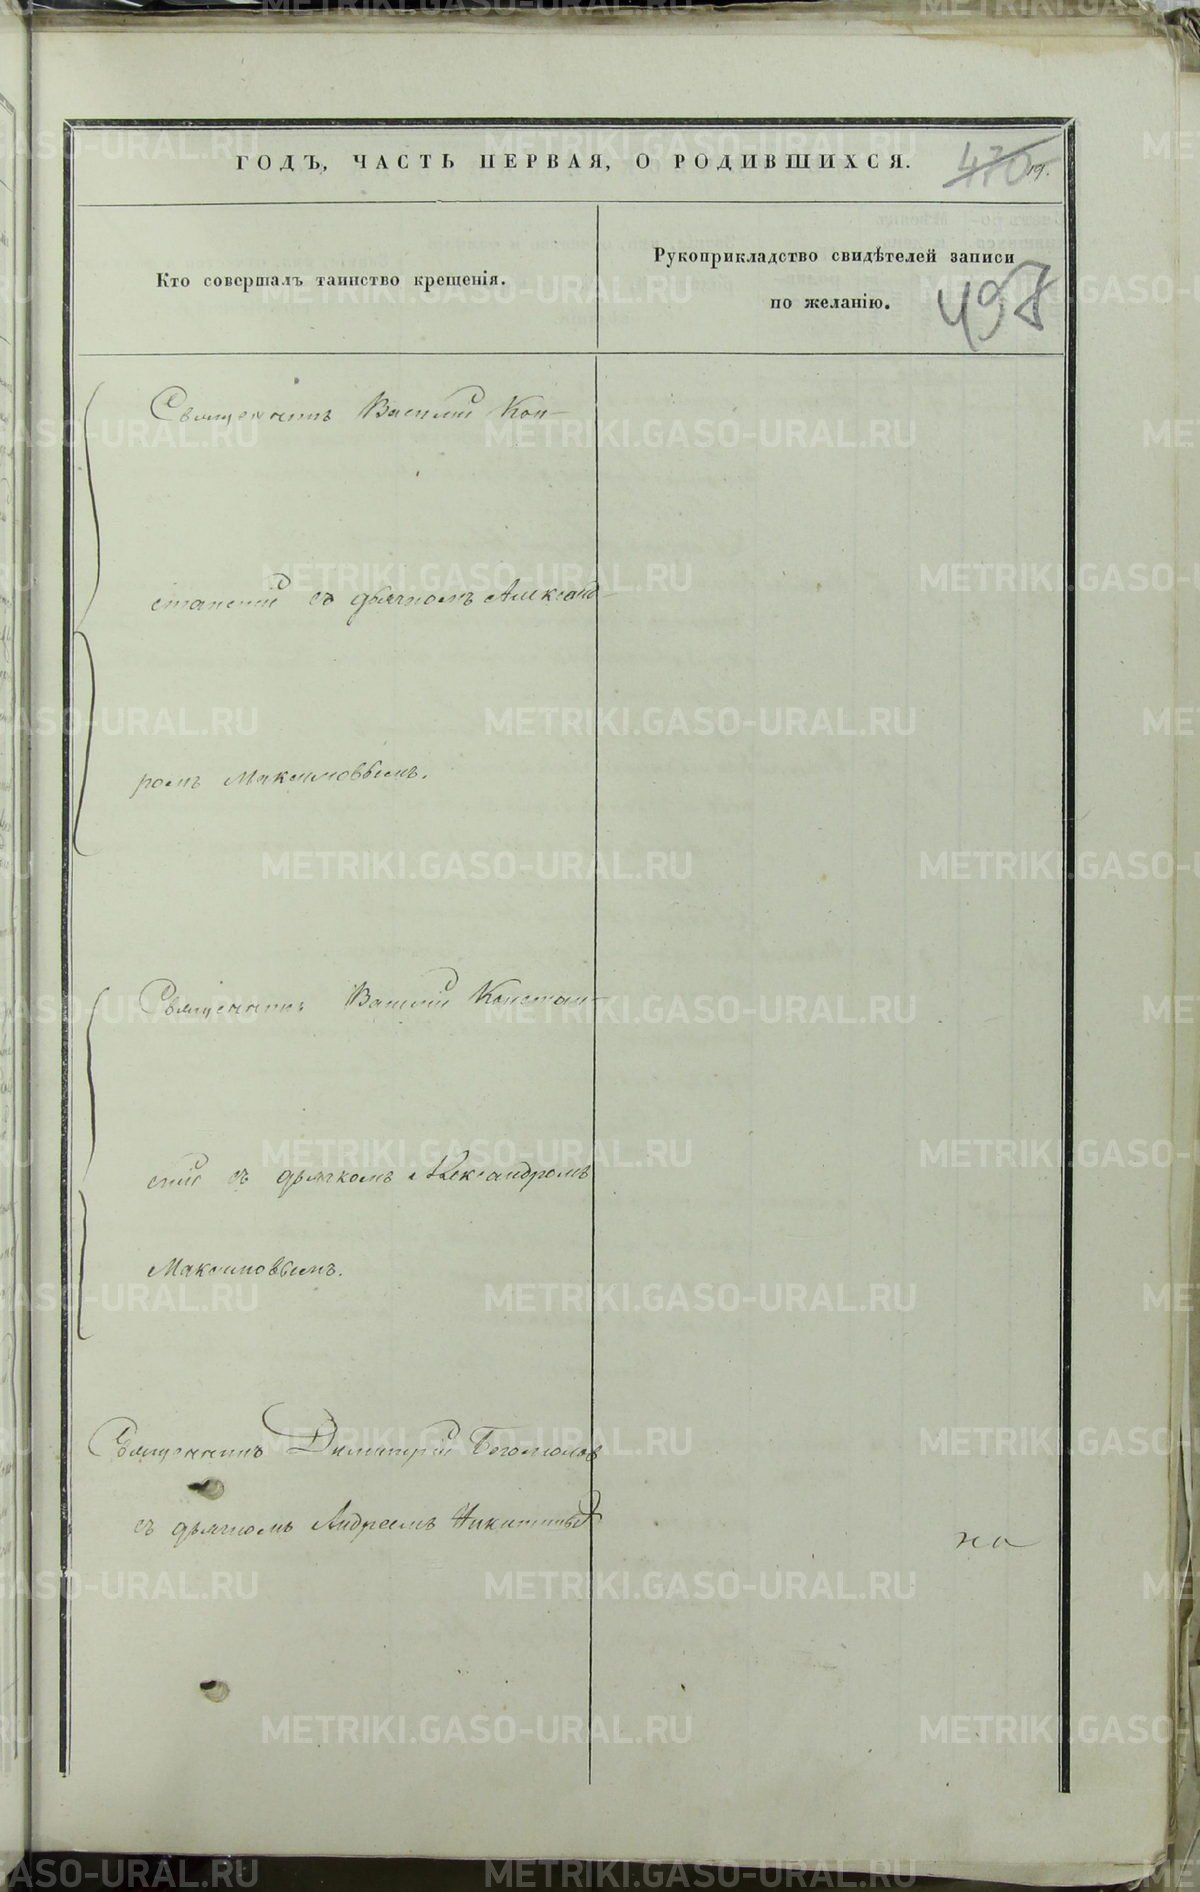 ГОДЪ, ЧАСТЬ ПЕРВАЯ, О РОДИВШИХСЯ.
470 19.
Кто совершалъ таинство крещенія.
Рукоприкладство свидѣтелей записи
по желанію.
498
Священникъ Василій Кон-
станскій съ дьячкомъ Александ-
ромъ Максимовымъ.
Священникъ Василій Констан-
скій съ дьячкомъ Александромъ
Максимовымъ.
Священникъ Димитрій Богомолов
съ дьячкомъ Андреемъ Никитин
на
METRIKI.GASO-URAL.RU